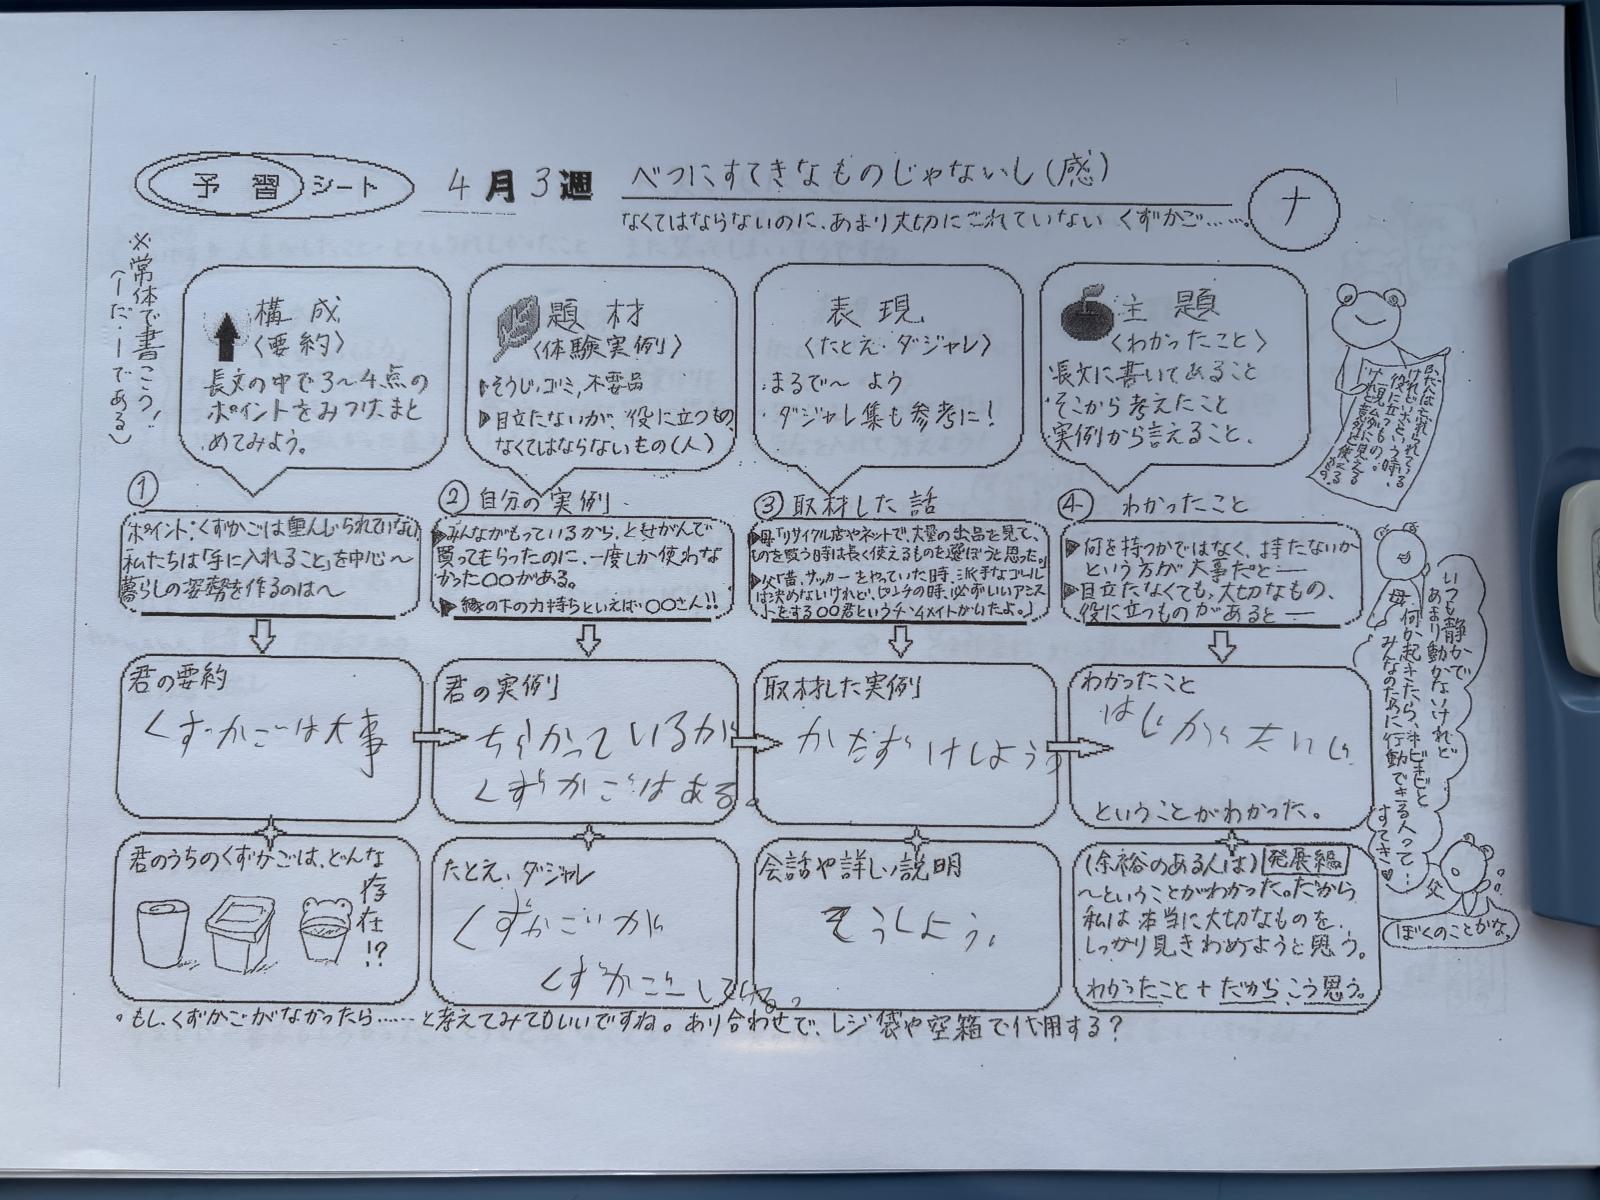 予習シート
4月3週
べつにすてきなものじゃないし(感)
なくてはならないのに、あまり大切にされていない くずかご……。
ナ
※常体で書こう!
(ーだ・ーである)
構成
〈要約〉
長文の中で3〜4点の
ポイントをみつけ、まと
めてみよう。
題材
〈体験実例〉
そうじ、ゴミ、不要品
目立たないが、役に立つもの、
なくてはならないもの(人)
表現
〈たとえ・ダジャレ〉
まるで〜よう
ダジャレ集も参考に!
主題
〈わかったこと〉
長文に書いてあること
そこから考えたこと
実例から言えること、
①
ポイント:くずかごは重んじられていない
私たちは「手に入れること」を中心〜
暮らしの姿勢を作るのは〜
② 自分の実例
▶みんながもっているから、とせがんで
買ってもらったのに、一度しか使わな
かった〇〇がある。
▶縁の下の力持ちといえば〇〇さん!!
③ 取材した話
▶母「リサイクル店やネットで、大量の出品を見て、
ものを買う時は長く使えるものを選ぼうと思った。」
▶父「昔、サッカーをやっていた時、派手なゴール
は決めないけれど、ピンチの時、必ずいいアシス
トをする〇〇君というチームメイトがいたよ。」
④ わかったこと
▶何を持つかではなく、持たないか
という方が大事だと―
▶目立たなくても、大切なもの、
役に立つものがあると―
君の要約
くずかごは大事
君の実例
ちらかっているが
くずかごはある。
取材した実例
かたずけしよう
わかったこと
ということがわかった。
君のうちのくずかごは、どんな
存在!?
たとえ、ダジャレ
くずかごが
会話や詳しい説明
そうしよう。
(余裕のある人は)発展編
〜ということがわかった。だから
私は本当に大切なものを、
しっかり見きわめようと思う。
わかったこと+だからこう思う。
いつも静かで
あまり動かないけれど
何か起きたら、キビキビと
みんなのために行動できる人って…
すてき♥
母
父
ぼくのことかな。
。もし、くずかごがなかったら……と考えてみてもいいですね。あり合わせで、レジ袋や空箱で代用する?